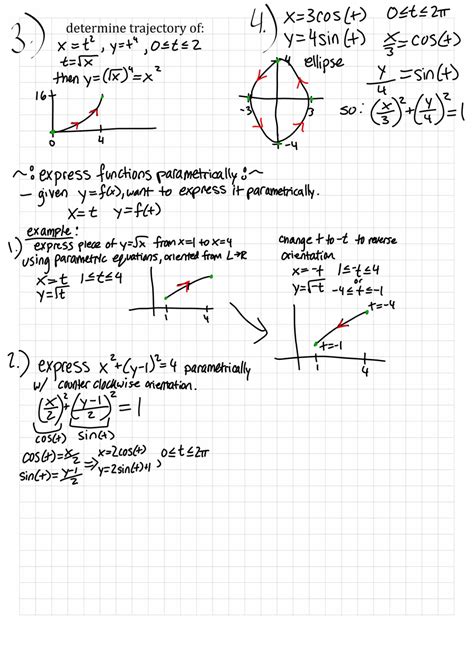 3.) determine trajectory of:
x = t², y = t⁴, 0 ≤ t ≤ 2
t = √x
then y = (√x)⁴ = x²
16
0 4
4.) x = 3cos(t) 0 ≤ t ≤ 2π
y = 4sin(t) x/3 = cos(t)
ellipse
y/4 = sin(t)
so: (x/3)² + (y/4)² = 1
4
-3 3
-4
~: express functions parametrically :~
– given y = f(x), want to express it parametrically.
x = t y = f(t)
example:
1.) express piece of y = √x from x = 1 to x = 4
using parametric equations, oriented from L→R
x = t 1 ≤ t ≤ 4
y = √t
1 4
change t to -t to reverse
orientation
x = -t 1 ≤ -t ≤ 4
or
y = √-t -4 ≤ t ≤ -1
t = -4
t = -1
1 4
2.) express x² + (y-1)² = 4 parametrically
w/ counter clockwise orientation.
(x/2)² + (y-1/2)² = 1
cos(t) sin(t)
cos(t) = x/2 ⇒ x = 2cos(t) , 0 ≤ t ≤ 2π
sin(t) = y-1/2 y = 2sin(t)+1